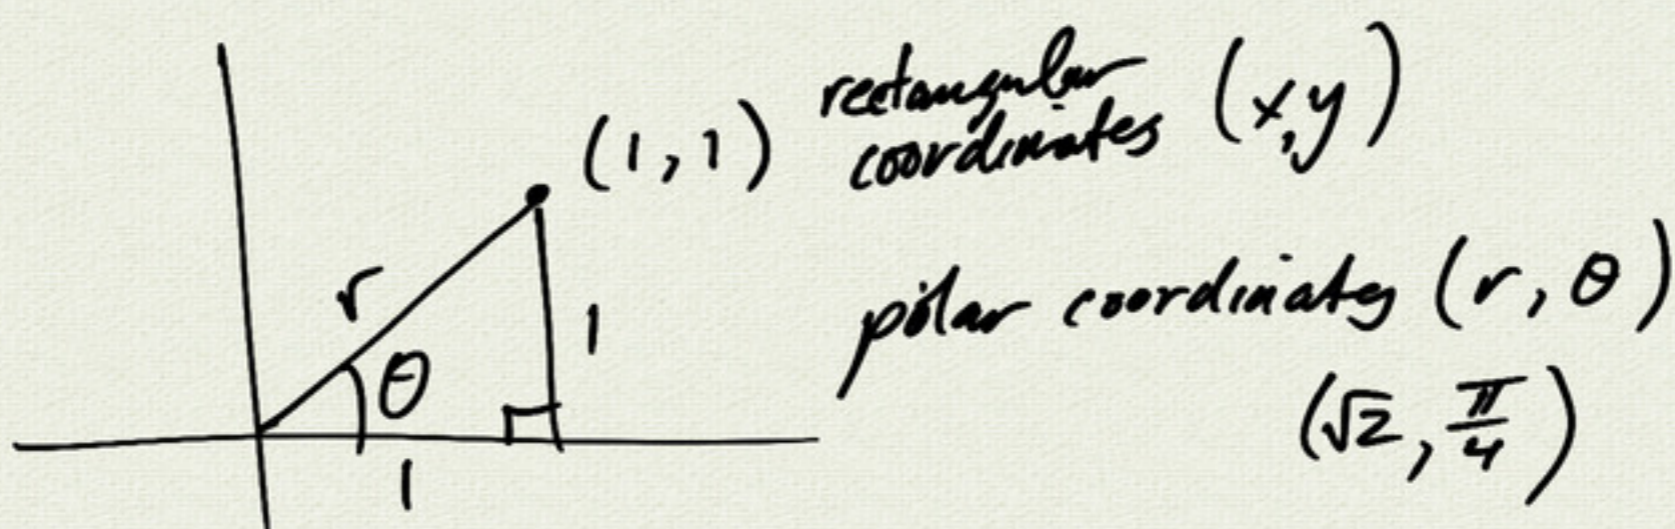 (1,1)
rectangular
coordinates (x,y)
r
θ
1
1
polar coordinates (r, θ)
(√2, π/4)